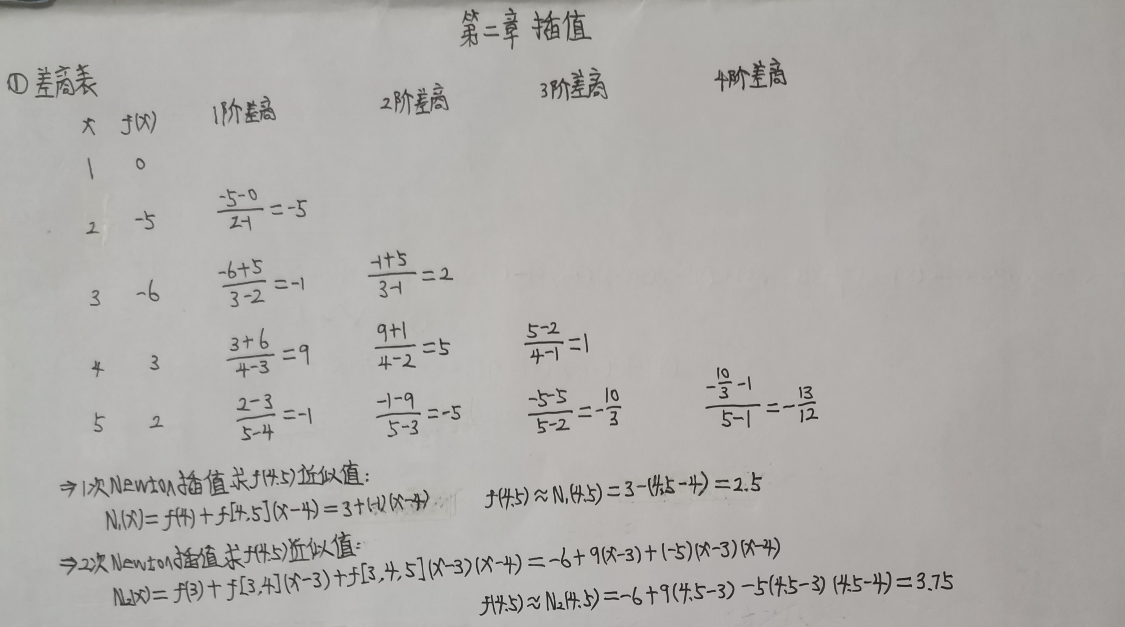 第二章 插值
① 差商表
x f(x) 1阶差商 2阶差商 3阶差商 4阶差商
1 0
2 -5 (-5-0)/(2-1) = -5
3 -6 (-6+5)/(3-2) = -1 (-1+5)/(3-1) = 2
4 3 (3+6)/(4-3) = 9 (9+1)/(4-2) = 5 (5-2)/(4-1) = 1
5 2 (2-3)/(5-4) = -1 (-1-9)/(5-3) = -5 (-5-5)/(5-2) = -10/3 (-10/3-1)/(5-1) = -13/12
⇒1次Newton插值求f(4.5)近似值:
N₁(x)=f(4)+f[4,5](x-4)=3+(-1)(x-4) f(4.5)≈N₁(4.5)=3-(4.5-4)=2.5
⇒2次Newton插值求f(4.5)近似值:
N₂(x)=f(3)+f[3,4](x-3)+f[3,4,5](x-3)(x-4)=-6+9(x-3)+(-5)(x-3)(x-4)
f(4.5)≈N₂(4.5)=-6+9(4.5-3)-5(4.5-3)(4.5-4)=3.75